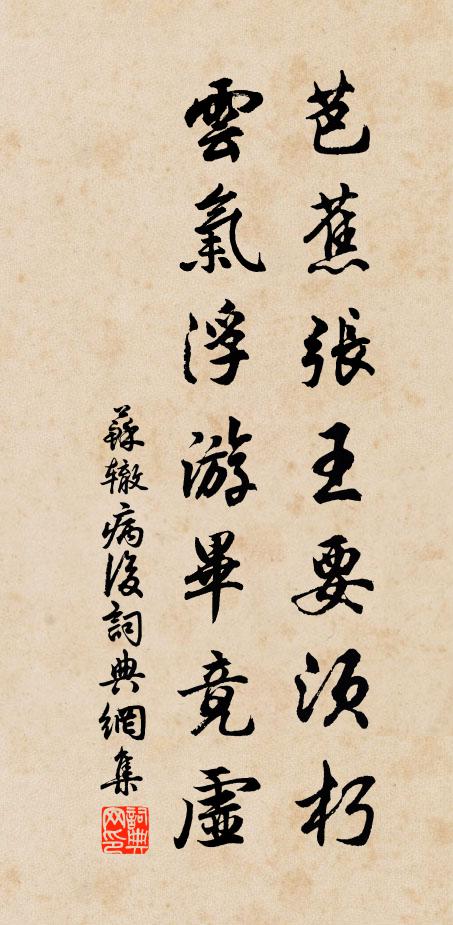 芭蕉張王要須朽
雲氣浮游畢竟虛
蘇辙病後詞典網集
詞典网印